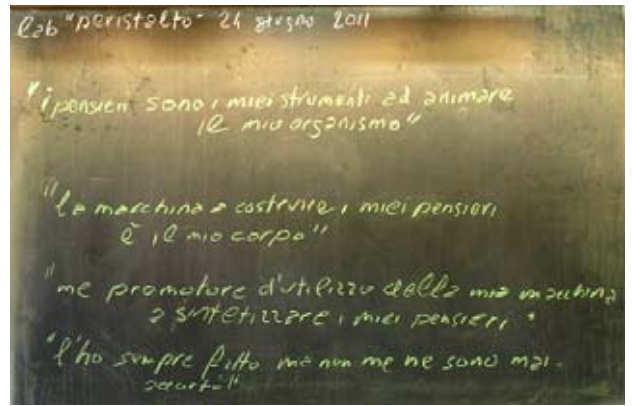 lab "peristalto" 24 giugno 2011
"i pensieri sono i miei strumenti ad animare
il mio organismo"
"la macchina a costruire i miei pensieri
è il mio corpo"
"me promotore d'utilizzo della mia macchina
a sintetizzare i miei pensieri"
"l'ho sempre fatto ma non me ne sono mai
accorto"